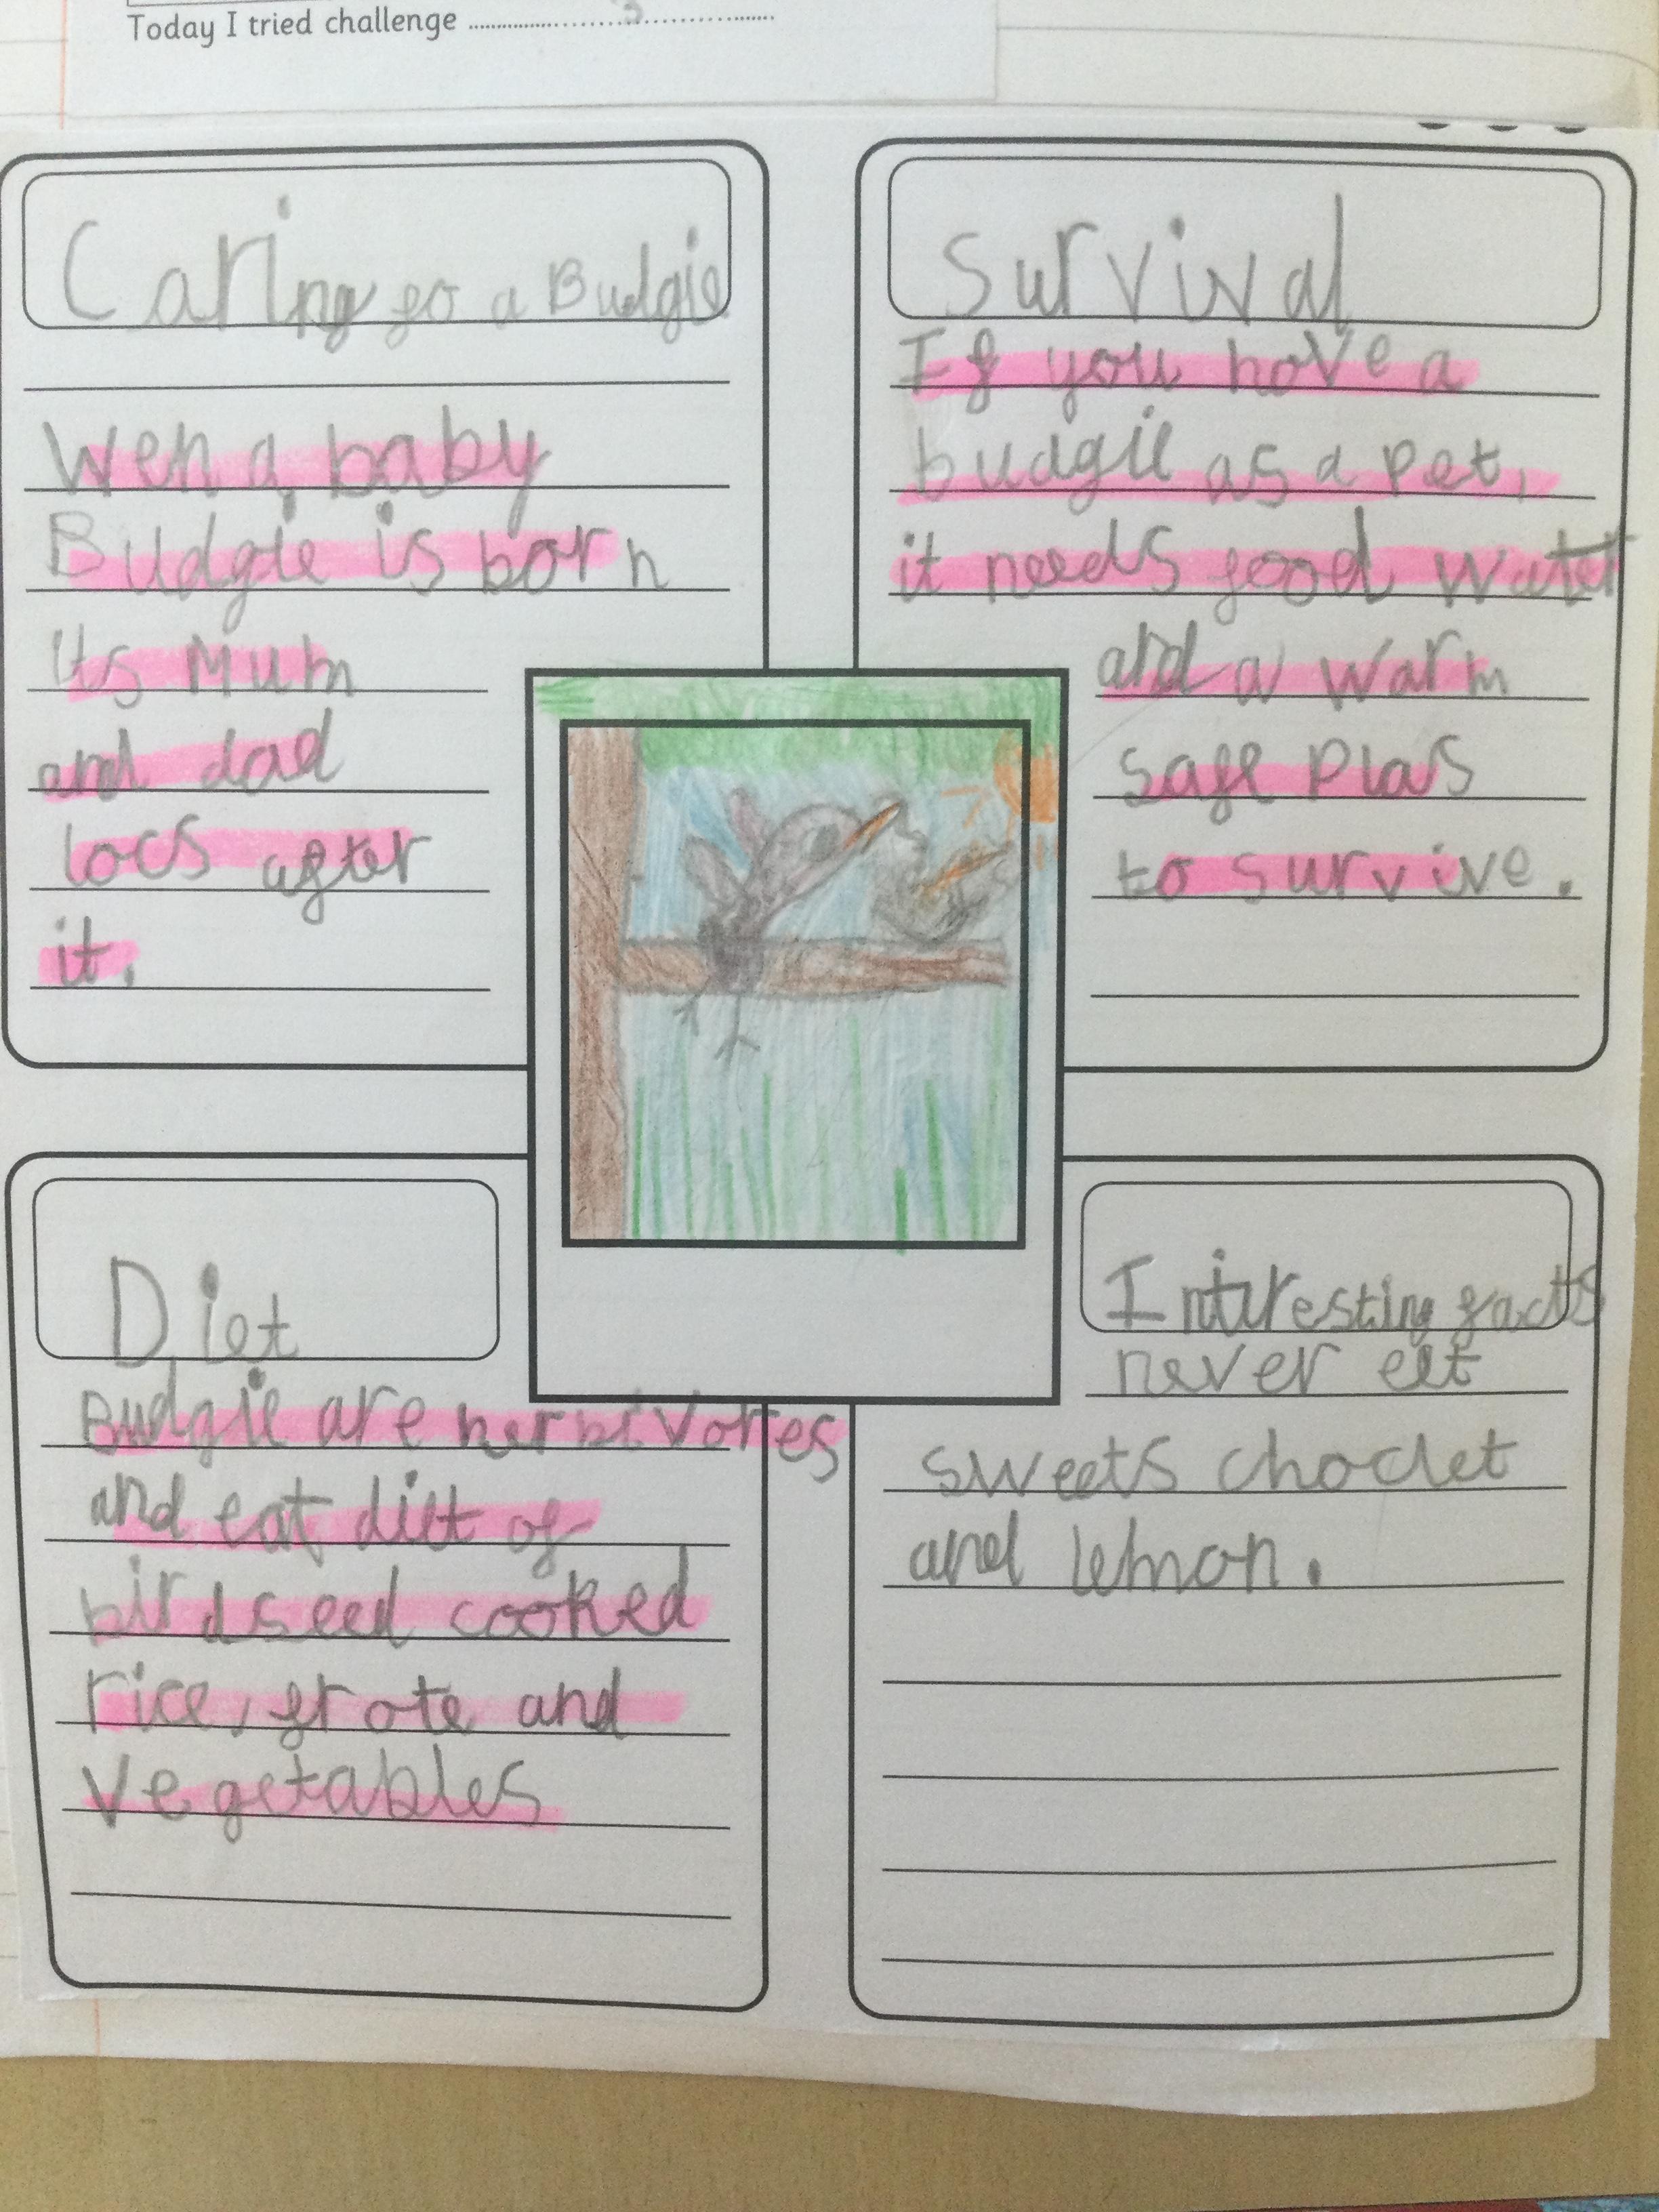 Today I tried challenge ........3........
Caring fo a Budgie
Wen a baby
Budgie is born
its Mum
and dad
locs after
it.
Survival
If you have a
budgie as a pet,
it needs food water
and a warm
safe plas
to survive.
Diet
Budgie are herbivortes
and eat diet of
birdseed cooked
rice, frote and
vegetables
Intresting facts
never eat
sweets choclet
and lemon.